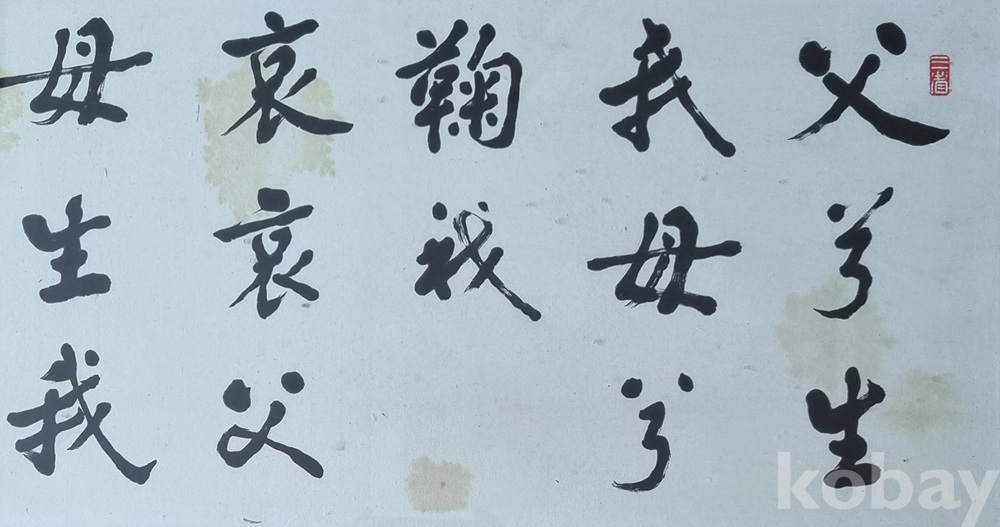 父兮生
我母兮
鞠我
哀哀父
母生我
kobay